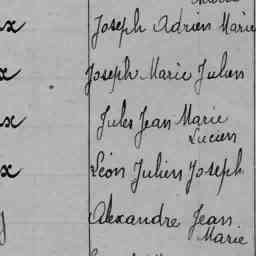 x Joseph Adrien Marie
x Joseph Marie Julien
x Jules Jean Marie
Lucien
x Léon Julien Joseph
Alexandre Jean
Marie